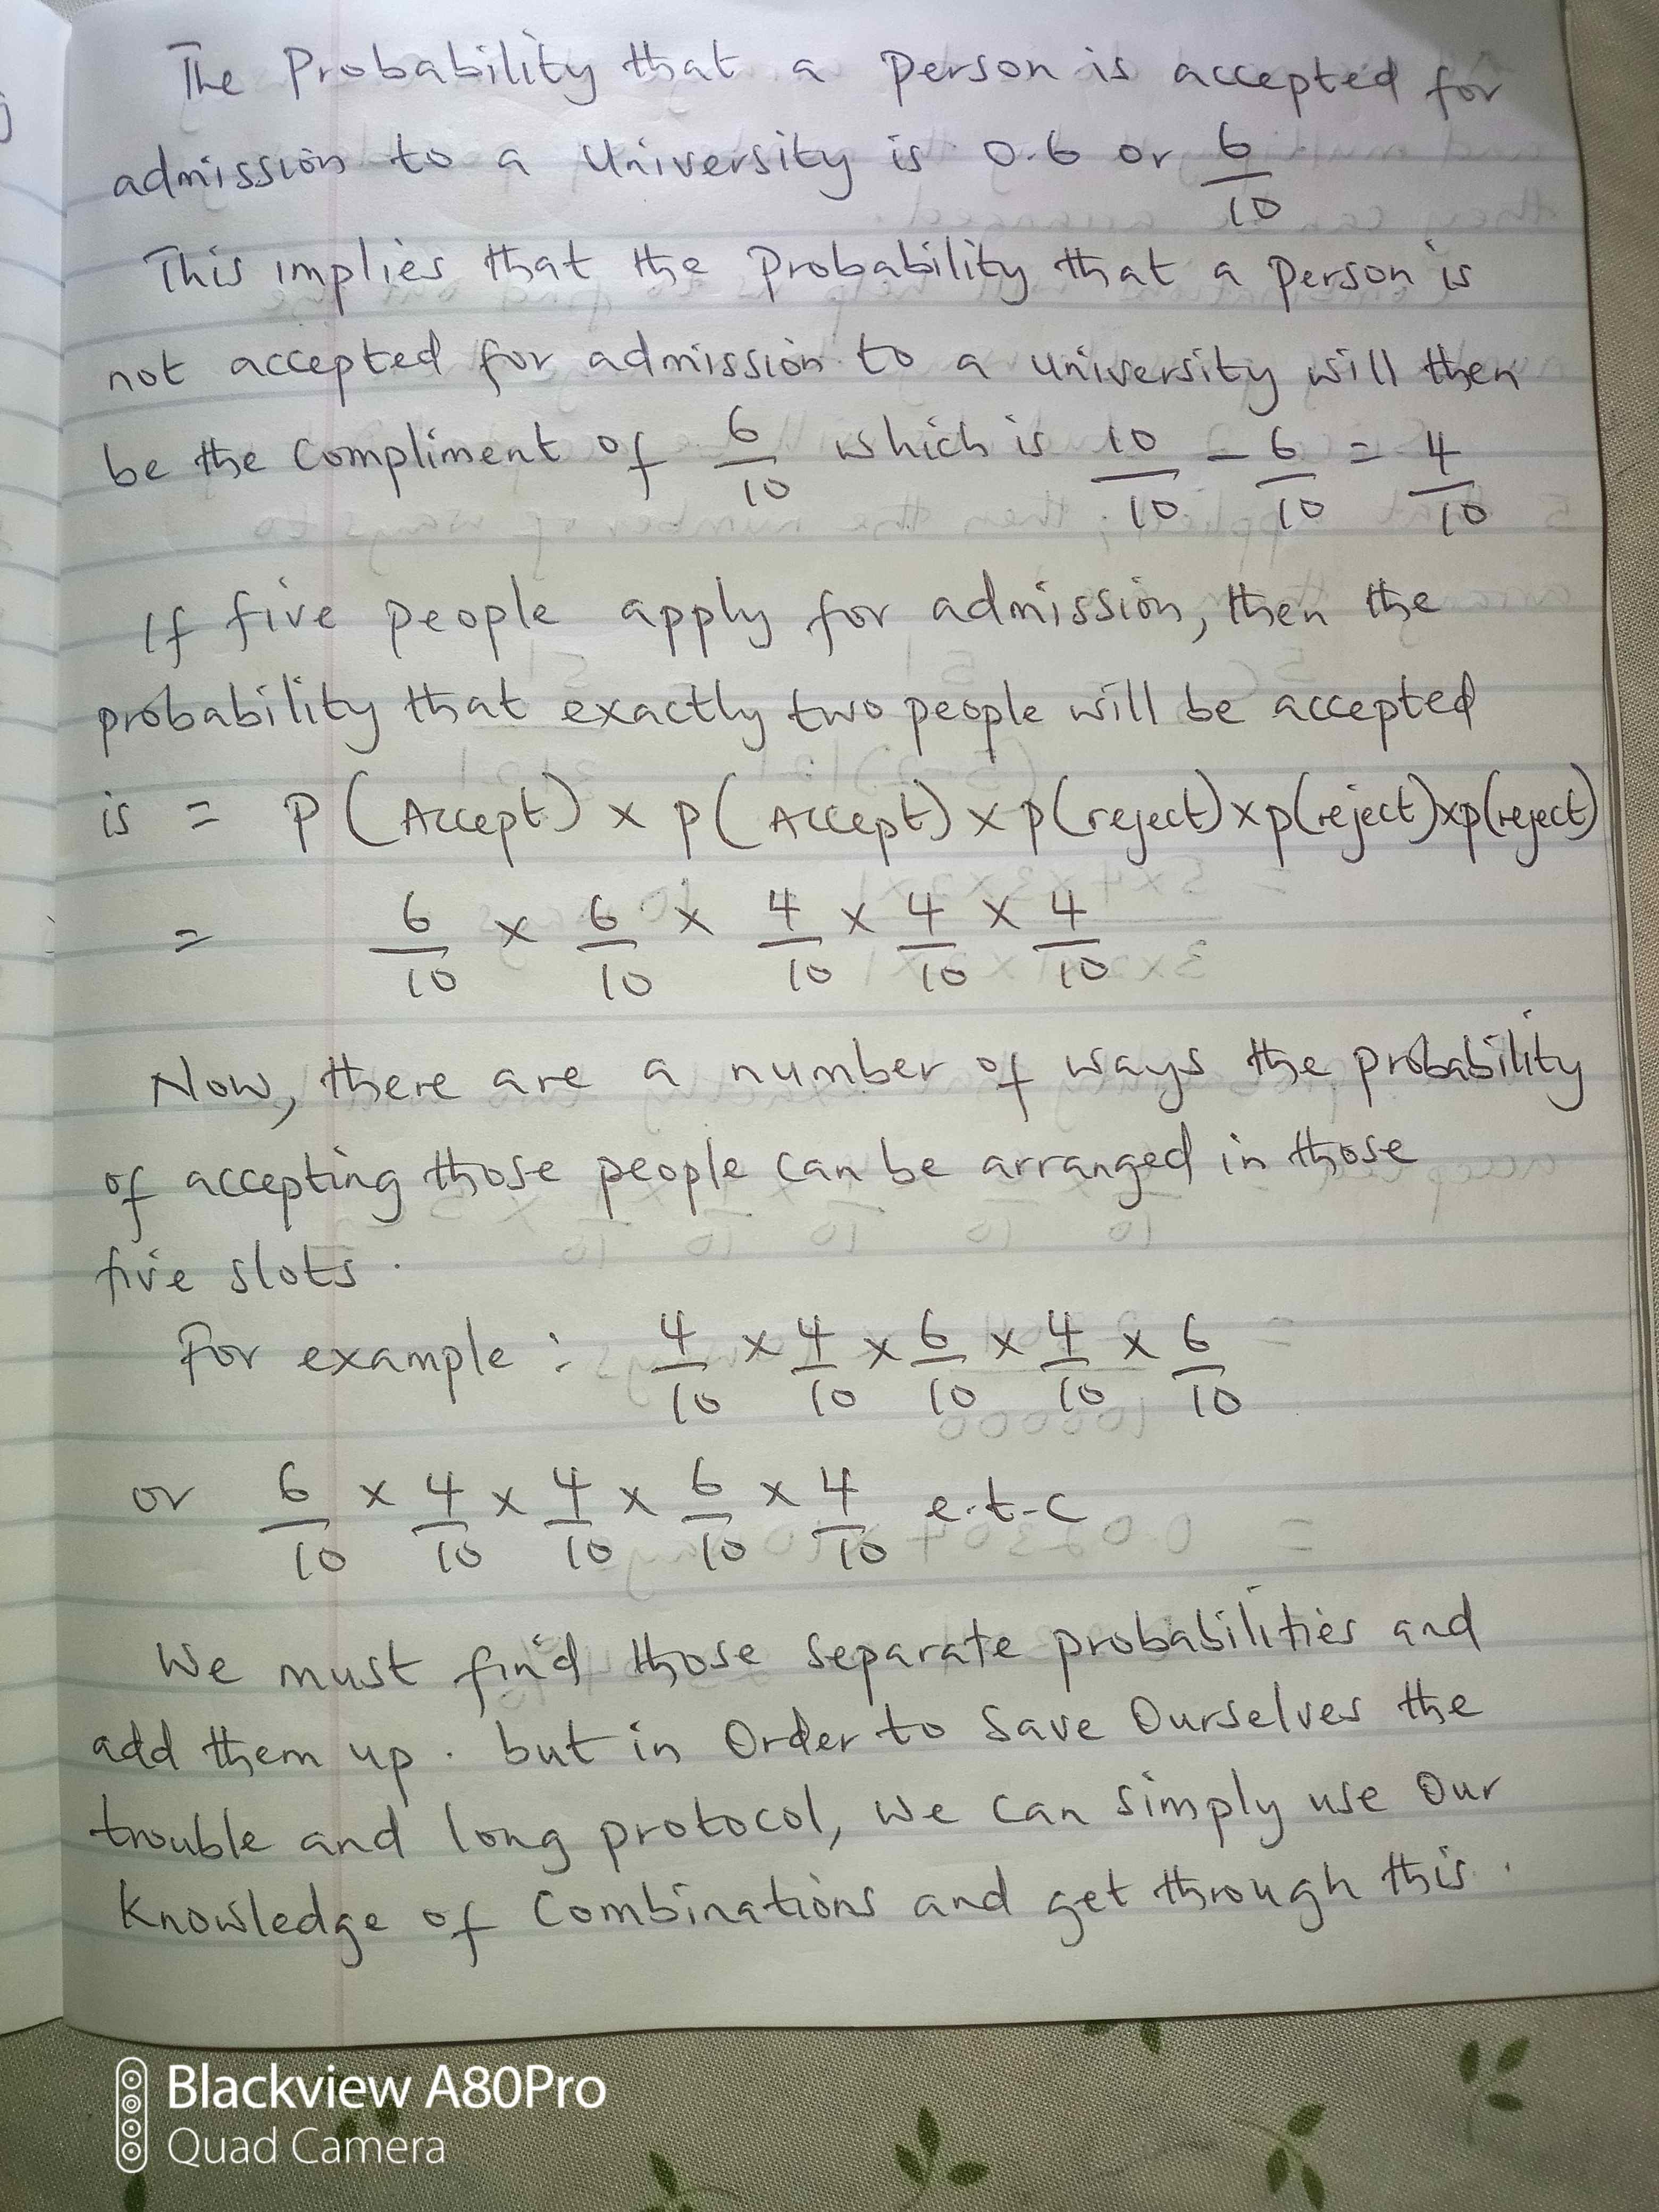 The Probability that a person is accepted for
admission to a University is 0.6 or 6/10
This implies that the probability that a person is
not accepted for admission to a university will then
be the compliment of 6/10 which is 10/10 - 6/10 = 4/10
If five people apply for admission, then the
probability that exactly two people will be accepted
is = P(Accept) x p(Accept) x p(reject) x p(reject) x p(reject)
= 6/10 x 6/10 x 4/10 x 4/10 x 4/10
Now, there are a number of ways the probability
of accepting those people can be arranged in those
five slots.
For example: 4/10 x 4/10 x 6/10 x 4/10 x 6/10
or 6/10 x 4/10 x 4/10 x 6/10 x 4/10 e.t-c
We must find those separate probabilities and
add them up. but in Order to save Ourselves the
trouble and long protocol, we can simply use Our
Knowledge of Combinations and get through this.
Blackview A80Pro
Quad Camera